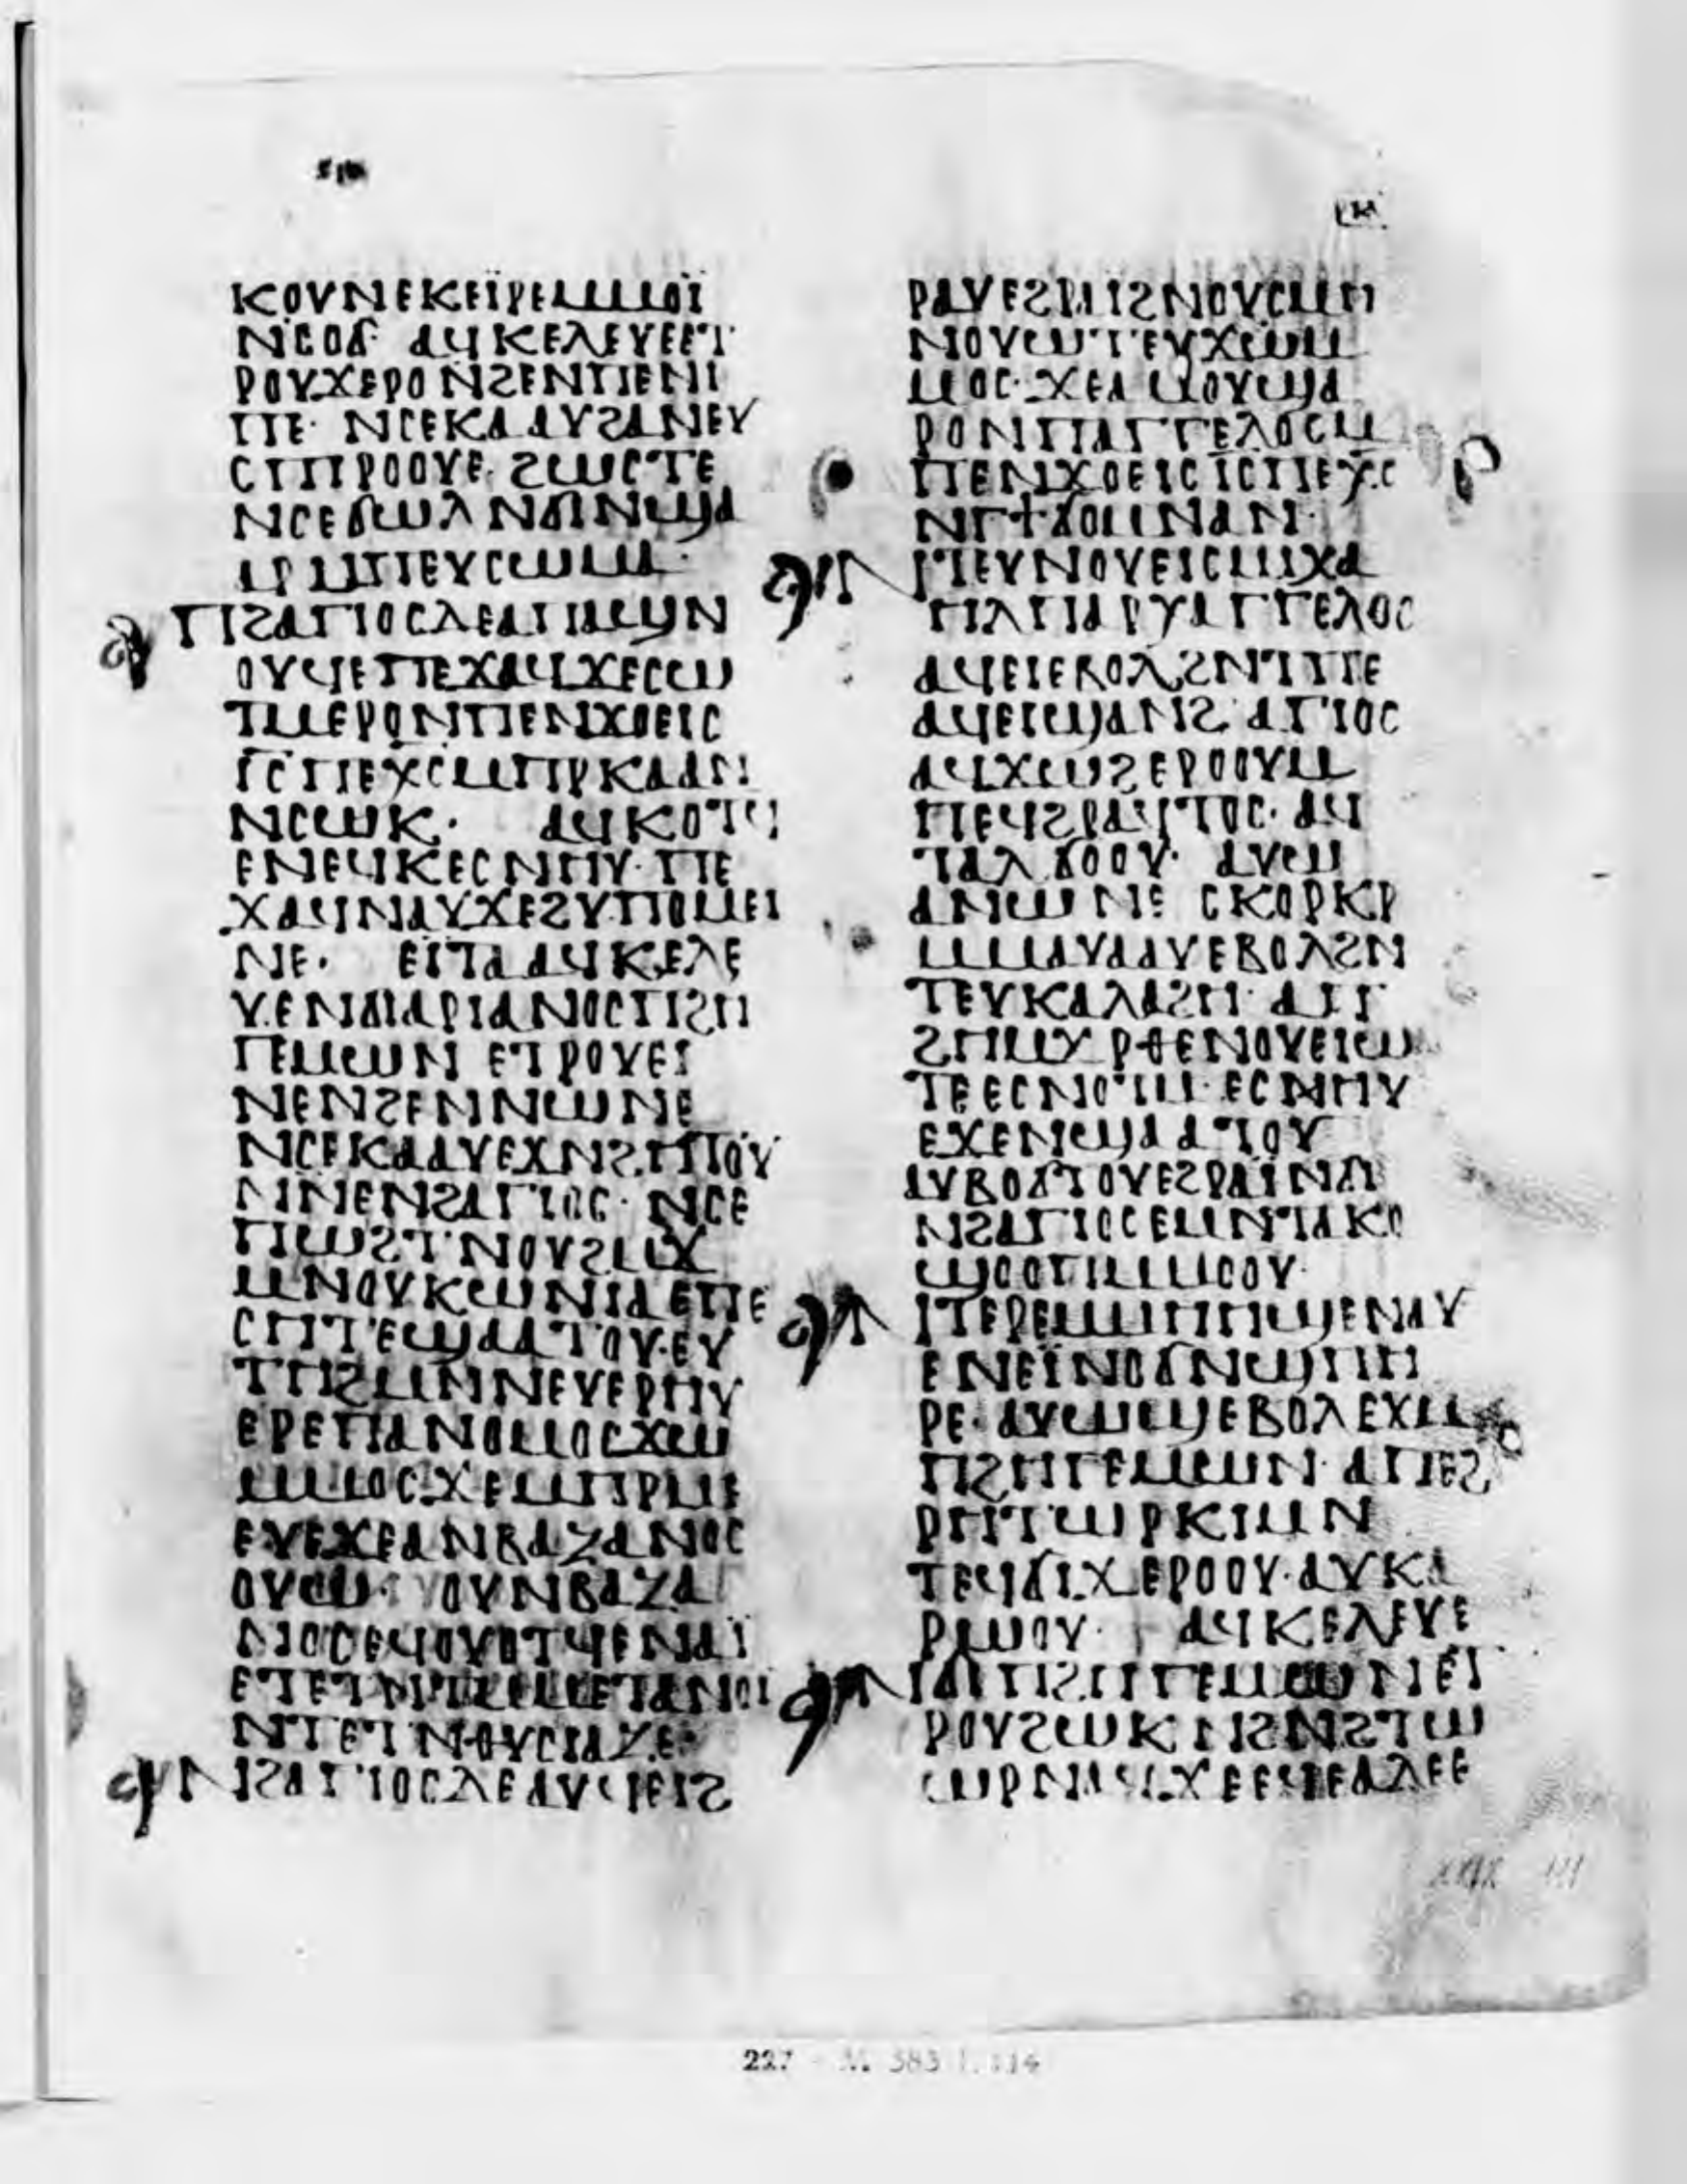 ⲕⲟⲩⲛⲉⲕⲉⲓⲣⲉⲙⲙⲟⲓ
ⲛϭⲟⲥ· ⲁϥⲕⲉⲗⲉⲩⲉⲉⲧ
ⲣⲟⲩϫⲉⲣⲟⲛϩⲉⲛⲡⲉⲛⲓ
ⲡⲉ· ⲛⲥⲉⲕⲁⲁⲩϩⲁⲛⲉⲩ
ⲥⲡⲓⲣⲟⲟⲩⲉ· ϩⲱⲥⲧⲉ
ⲛⲥⲉⲃⲱⲗⲛϭⲓⲛϣⲁ
ⲁⲣⲙⲡⲉⲩⲥⲱⲙⲁ·
ⲡϩⲁⲅⲓⲟⲥⲗⲉⲁⲡⲁϣⲛ
ⲟⲩϥⲉⲡⲉϫⲁϥϫⲉⲥⲱ
ⲧⲙⲉⲣⲟⲛⲡⲉⲛϫⲟⲉⲓⲥ
ⲓⲥⲡⲉⲭⲥⲙⲡⲣⲕⲁⲁⲛ
ⲛⲥⲱⲕ· ⲁϥⲕⲟⲧϥ
ⲉⲛⲉϥⲕⲉⲥⲛⲏⲩ·ⲡⲉ
ϫⲁϥⲛⲁⲩϫⲉϩⲩⲡⲟⲙⲉⲓ
ⲛⲉ· ⲉⲓⲧⲁⲁϥⲕⲉⲗⲉ
ⲩⲉⲛϭⲓⲁⲣⲓⲁⲛⲟⲥⲡϩⲏ
ⲅⲉⲙⲱⲛ ⲉⲧⲣⲟⲩⲉⲓ
ⲛⲉⲛϩⲉⲛⲛⲱⲛⲉ
ⲛⲥⲉⲕⲁⲁⲩⲉϫⲛϩⲏⲧⲟⲩ
ⲛⲛⲉⲛϩⲁⲅⲓⲟⲥ· ⲛⲥⲉ
ⲡⲱϩⲧ·ⲛⲟⲩϩⲙϫ
ⲙⲛⲟⲩⲕⲱⲛⲓⲁⲉⲡⲉ
ⲥⲏⲧⲉϣⲁⲁⲧⲟⲩ·ⲉⲩ
ⲧⲏϩⲙⲛⲛⲉⲩⲉⲣⲏⲩ
ⲉⲣⲉⲡⲁⲛⲟⲙⲟⲥϫⲱ
ⲙⲙⲟⲥϫⲉⲙⲡⲣⲙⲉ
ⲉⲩⲉϫⲉⲁⲛⲃⲁⲍⲁⲛⲟⲥ
ⲟⲩⲱ· ⲟⲩⲛⲃⲁⲍⲁ
ⲛⲟⲥⲉϥⲟⲩⲟⲧϥⲉⲛⲁⲓ
ⲉⲧⲉⲧⲛⲧⲙⲙⲉⲧⲁⲛⲟⲓ
ⲛⲧⲉⲧⲛⲑⲩⲥⲓⲁⲍⲉ·
ⲛϩⲁⲅⲓⲟⲥⲇⲉⲁⲩϥⲉⲓϩ
ⲣⲁⲩⲉϩⲣⲁⲓϩⲛⲟⲩⲥⲙⲏ
ⲛⲟⲩⲱⲧⲉⲩϫⲱⲙ
ⲙⲟⲥ·ϫⲉⲁⲙⲟⲩϣⲁ
ⲣⲟⲛⲡⲁⲅⲅⲉⲗⲟⲥⲙ
ⲡⲉⲛϫⲟⲉⲓⲥⲓⲥⲡⲉⲭⲥ
ⲛⲅϯϭⲟⲙⲛⲁⲛ·
ⲛⲧⲉⲩⲛⲟⲩⲉⲓⲥⲙⲓⲭⲁ
ⲏⲗⲡⲁⲣⲭⲁⲅⲅⲉⲗⲟⲥ
ⲁϥⲉⲓⲉⲃⲟⲗϩⲛⲧⲡⲉ
ⲁϥⲉⲓϣⲁⲛϩⲁⲅⲓⲟⲥ
ⲁϥϫⲱϩⲉⲣⲟⲟⲩⲙ
ⲡⲉϥϩⲣⲁⲃⲧⲟⲥ· ⲁϥ
ⲧⲁⲗϭⲟⲟⲩ· ⲁⲩⲱ
ⲁⲛⲱⲛⲉ ⲥⲕⲟⲣⲕⲣ
ⲙⲙⲁⲩⲁⲁⲩⲉⲃⲟⲗϩⲛ
ⲧⲉⲩⲕⲁⲗⲁϩⲏ· ⲁⲡ
ϩⲏⲙϫ ⲣⲑⲉⲛⲟⲩⲉⲓⲱ
ⲧⲉⲉⲥⲛⲟⲧⲙ·ⲉⲥⲛⲏⲩ
ⲉϫⲉⲛϣⲁⲁⲧⲟⲩ
ⲁⲩⲃⲟϭⲧⲟⲩⲉϩⲣⲁⲓⲛϭⲓ
ⲛϩⲁⲅⲓⲟⲥⲉⲙⲛⲧⲁⲕⲟ
ϣⲟⲟⲡⲙⲙⲟⲟⲩ·
ⲛⲧⲉⲣⲉⲙⲙⲏⲏϣⲉⲛⲁⲩ
ⲉⲛⲉⲓⲛⲟϭⲛϣⲡⲏ
ⲣⲉ· ⲁⲩⲱϣⲉⲃⲟⲗⲉϫⲙ
ⲡϩⲏⲅⲉⲙⲱⲛ· ⲁⲡⲉϩ
ⲣⲏⲧⲱⲣⲕⲓⲙⲛ
ⲧⲉϥϭⲓϫⲉⲣⲟⲟⲩ·ⲁⲩⲕⲁ
ⲣⲱⲟⲩ· ⲁϥⲕⲉⲗⲉⲩⲉ
ⲛϭⲓⲡϩⲏⲅⲉⲙⲱⲛⲉⲧ
ⲣⲟⲩϩⲱⲕⲛϩⲛϩⲧⲱ
ⲱⲣⲛⲁϥ·ϫⲉⲉϥⲉⲁⲗⲉ